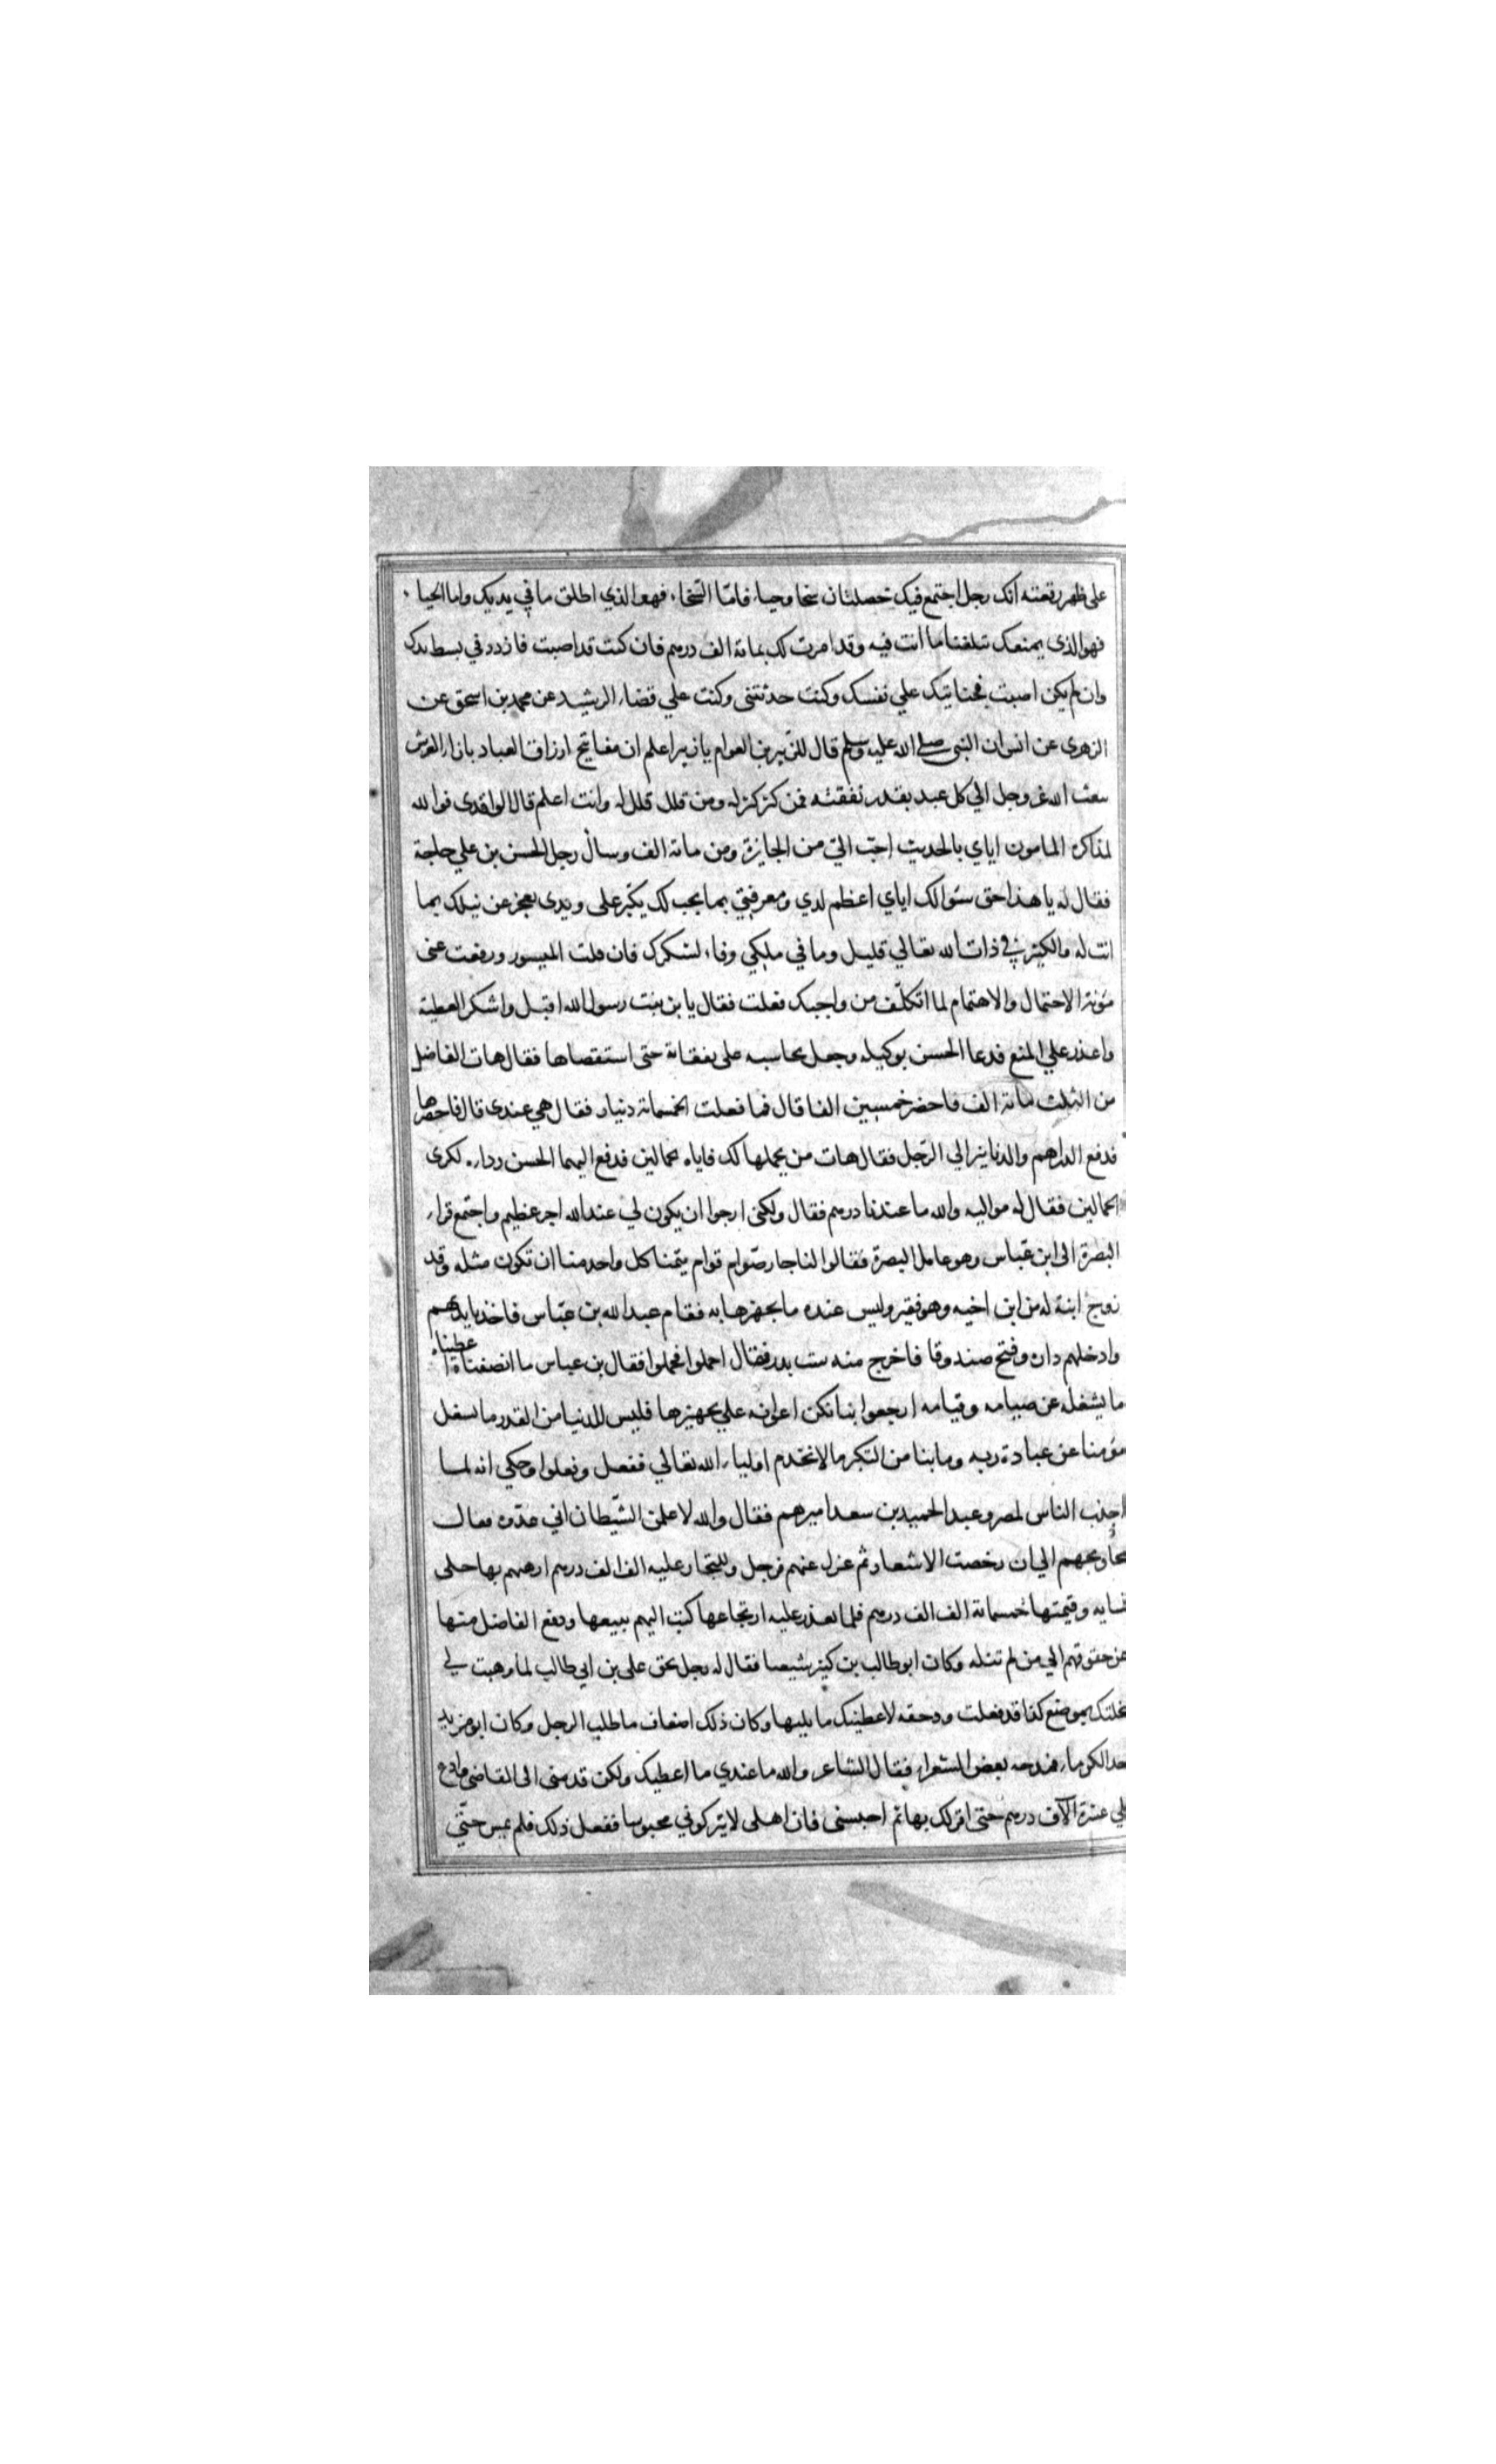 على ظهر رقعته انك رجل اجتمع فيك خصلتان سخا وحياء فاما السّخاء فهو الذي اطلق ما في يديك واما الحياء
فهو الذى يمنعك تبلغنا ما انت فيه وقد امرت لك بمائة الف درهم فان كنت قد اصبت فازدد في بسط يدك
وان لم يكن اصبت فجنايتك علي نفسك وكنت حدثتنى وكنت علي قضاء الرشيد عن محمد بن اسحق عن
الزهرى عن انس ان النبى صلى الله عليه وسلم قال للزبير بن العوام يا زبير اعلم ان مفاتيح ارزاق العباد بازاء العرش
يبعث الله عز وجل الي كل عبد بقدر نفقته فمن كثر كثر له ومن قلل قلل له وانت اعلم قال الواقدى فوالله
لمذاكرة المامون اياي بالحديث احبّ اليّ من الجايزة ومن مائة الف وسال رجل الحسن بن علي حاجة
فقال له يا هذا حق سئوالك اياي اعظم لدي ومعرفتي بما يجب لك يكبر على ويدى بعجز عن نيلك بما
انت له والكثير في ذات الله تعالي قليل وما في ملكي وفاء لشكرك فان قلت الميسور ورفعت عنى
مؤنة الاحتمال والاهتمام لما اتكلّف من واجبك فعلت فقال يا بن بنت رسول الله اقبل واشكر العطية
واعذر علي المنع فدعا الحسن بوكيله وجعل يحاسبه على نفقاته حتى استقصاها فقال هات الفاضل
من الثلث مائة الف فاحضر خمسين الفا قال فما فعلت الخمسمائة دنيار فقال هي عندى قال فاحضرها
فدفع الدراهم والدنانير الي الرّجل فقال هات من يحملها لك فاياه بحمالين فدفع اليهما الحسن رداءه لكرى
الحمالين فقال له مواليه والله ما عندنا درهم فقال ولكنى ارجوا ان يكون لي عند الله اجر عظيم واجتمع قراء
البصرة الى ابن عبّاس وهو عامل البصرة فقالوا لنا جار صوّام قوام يتمنا كل واحد منا ان تكون مثله وقد
زوج ابنة له من ابن اخيه وهو فقير وليس عنده ما يجهزها به فقام عبد الله بن عبّاس فاخذ بايديهم
وادخلهم داره وفتح صندوقا فاخرج منه ست بدر فقال احملوا فحملوا فقال بن عباس ما انصفناه اعطيناه
ما يشغله عن صيامه وقيامه ارجعوا بنا نكن اعوانه علي تجهيزها فليس للدنيا من القدر ما يشغل
مؤمنا عن عبادة ربه وما بنا من التكبر ما لا نخدم اولياء الله تعالي ففعل وفعلوا وحكي انه لما
اجدب الناس لمصر وعبد الحميد بن سعد اميرهم فقال والله لا علمن الشّيطان اني عدوه فعال
محاويجهم الي ان رخصت الاشعار ثم عزل عنهم فرجل وللتجار عليه الف الف درهم ارهنهم بها حلى
نسايه وقيمتها خمسمائة الف الف درهم فلما تعذر عليه ارتجاعها كتب اليهم ببيعها ودفع الفاضل منها
عن حقوقهم الي من لم تنله وكان ابو طالب بن كثير شيعيا فقال له رجل بحق على بن ابي طالب لما وهبت لي
نخلتك بموضع كذا قد فعلت وحقه لا عطينك ما يليها وكان ذلك اضعاف ما طلب الرجل وكان ابو مزيد
احد الكرماء فمدحه بعض الشعراء فقال للشاعر والله ما عندي ما اعطيك ولكن قدمنى الى القاضي وادع
على عشرة آلاف درهم حتى اقر لك بها ثم احبسنى فان اهلى لا يتركوني محبوسا ففعل ذلك فلم يمس حتّي